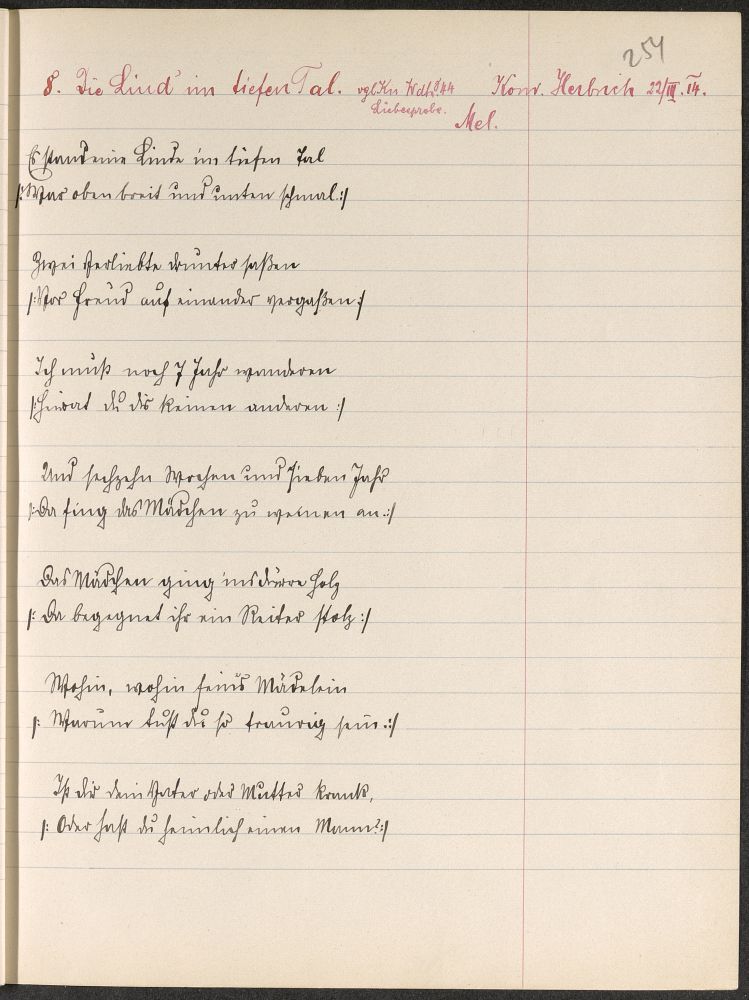 254
8. Die Lind' im tiefen Tal. vgl. Ku Wdh 44 Konr. Herbrich 22/III. 14.
Liebesprobe.
Mel.
Es stand eine Linde im tiefen Tal
/: War oben breit und unten schmal :/
Zwei Verliebte drunter saßen
/: Vor Freud auf einander vergaßen :/
Ich muß noch 7 Jahr wanderen
/: Heirat du dir keinen anderen :/
Und sechzehn Wochen und sieben Jahr
/: Da fing das Mädchen zu weinen an :/
Das Mädchen ging ins dürre Holz
/: Da begegnet ihr ein Reiter stolz :/
Wohin, wohin feins Mädelein
/: Warum tust du so traurig sein :/
Ist dir dein Vater oder Mutter krank,
/: Oder hast du heimlich einen Mann? :/